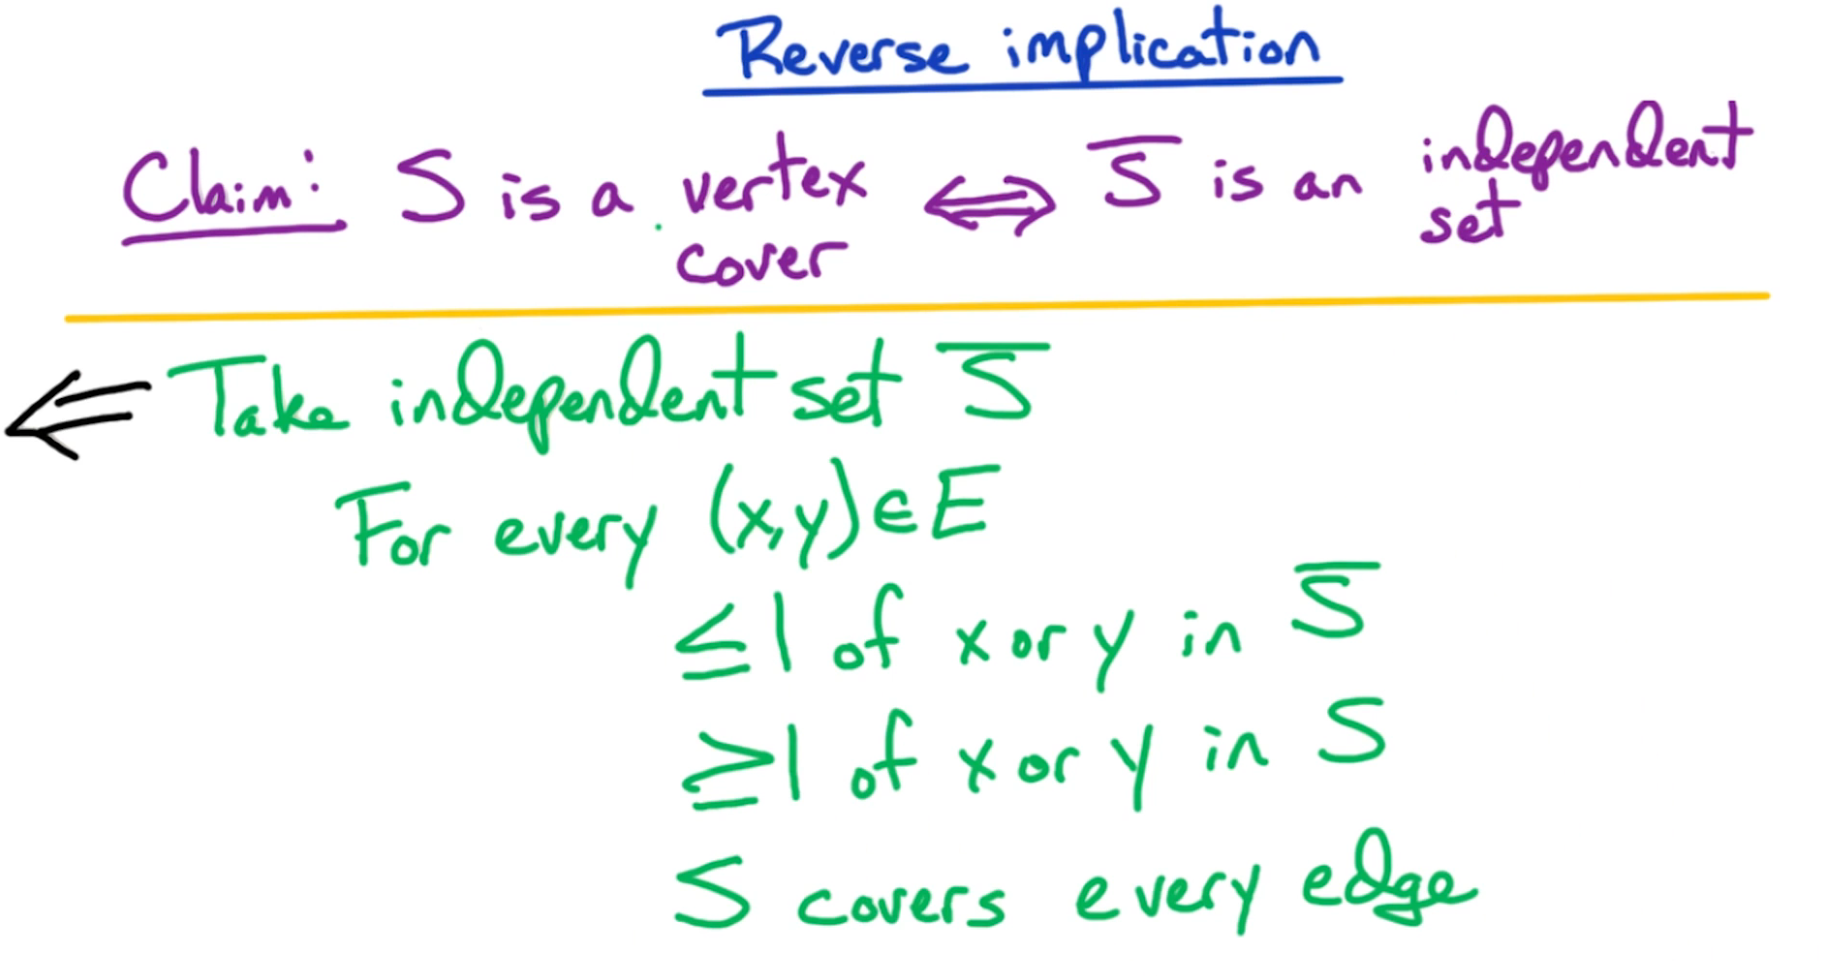 Reverse implication
Claim: S is a vertex cover ⟺ S̅ is an independent set
⟸ Take independent set S̅
For every (x,y)∈E
≤1 of x or y in S̅
≥1 of x or y in S
S covers every edge